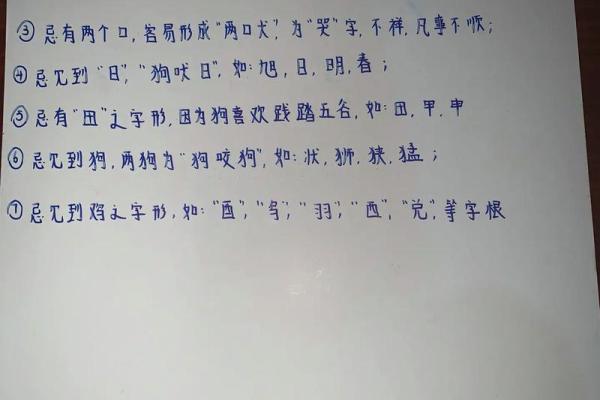 ③ 忌有两个口,容易形成“两口犬”,为“哭”字,不祥,凡事不顺;
④ 忌见到“日”,“狗吠日”,如:旭,日,明,春;
⑤ 忌有“田”之字形,因为狗喜欢践踏五谷,如:田,甲,申
⑥ 忌见到狗,两狗为“狗咬狗”,如:状,狮,狭,猛;
⑦ 忌见到鸡之字形,如:“酉”,“鸟”,“羽”,“西”,“兑”,等字根